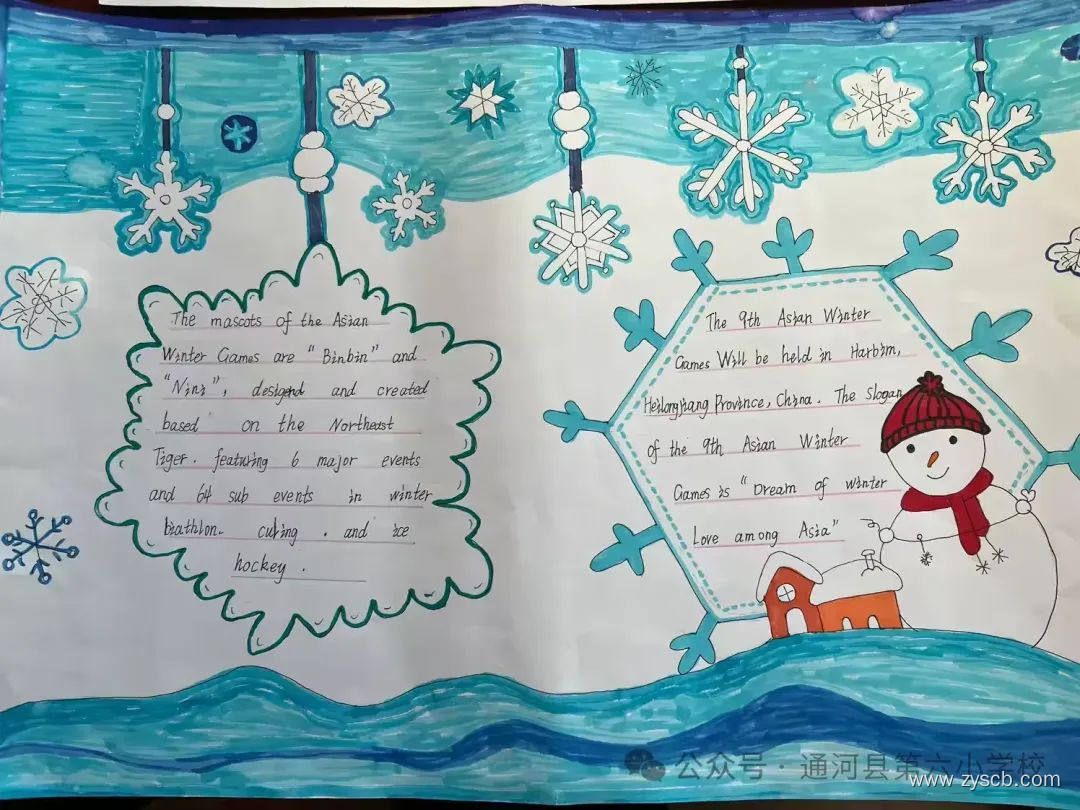 The mascots of the Asian
Winter Games are "Binbin" and
"Nini", desigend and created
based on the Northeast
Tiger. featuring 6 major events
and 64 sub events in winter
biathlon. culing . and ice
hockey .
The 9th Asian Winter
Games Will be held in Harbim,
Heilongjiang Province, China. The slogan
of the 9th Asian Winter
Games is "Dream of winter
Love among Asia"
公众号·通河县第六小学校
www.zyscb.com